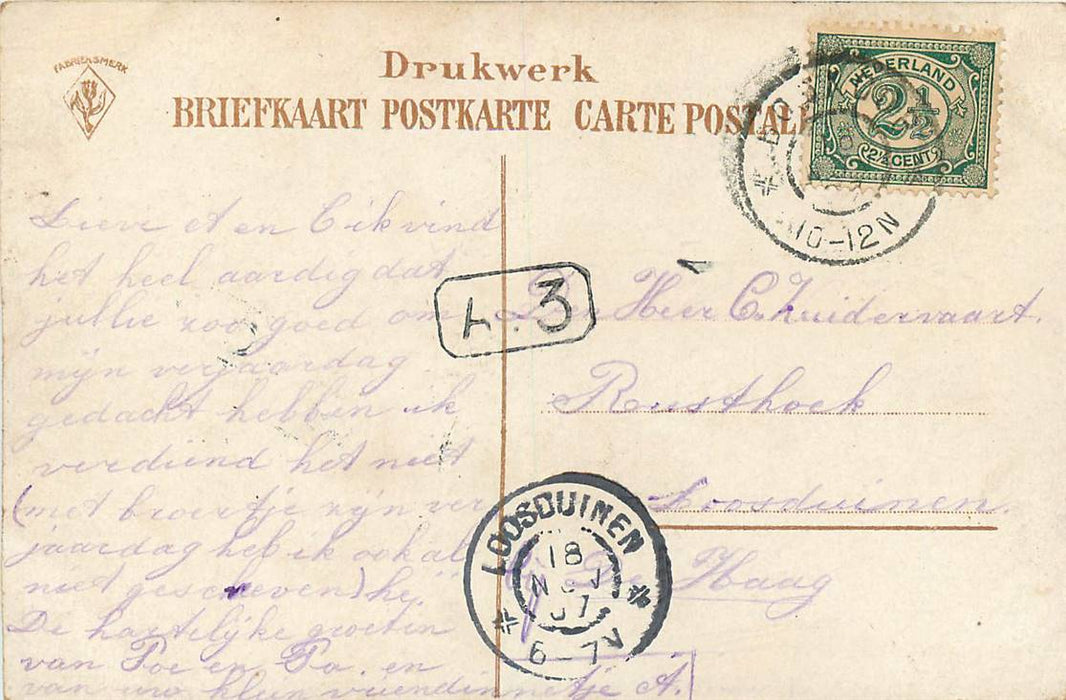 FABRIEKSMERK
Drukwerk
BRIEFKAART POSTKARTE CARTE POSTALE
NEDERLAND
2½
2½ CENT
10-12N
Lieve et en C ik vind
het heel aardig dat
jullie zoo goed om
mijn verjaardag
gedacht hebben ik
verdiend het niet
(met broertje zijn ver
jaardag heb ik ook al
niet geschreven) hè.
De hartelijke groeten
van Moe en Pa. en
van uw klein vriendinnetje A.
A. 3
Den Heer C. Zuidervaart.
Rusthoek
Loosduinen.
bij Den Haag
LOOSDUINEN
18
NOV
07
6-7V